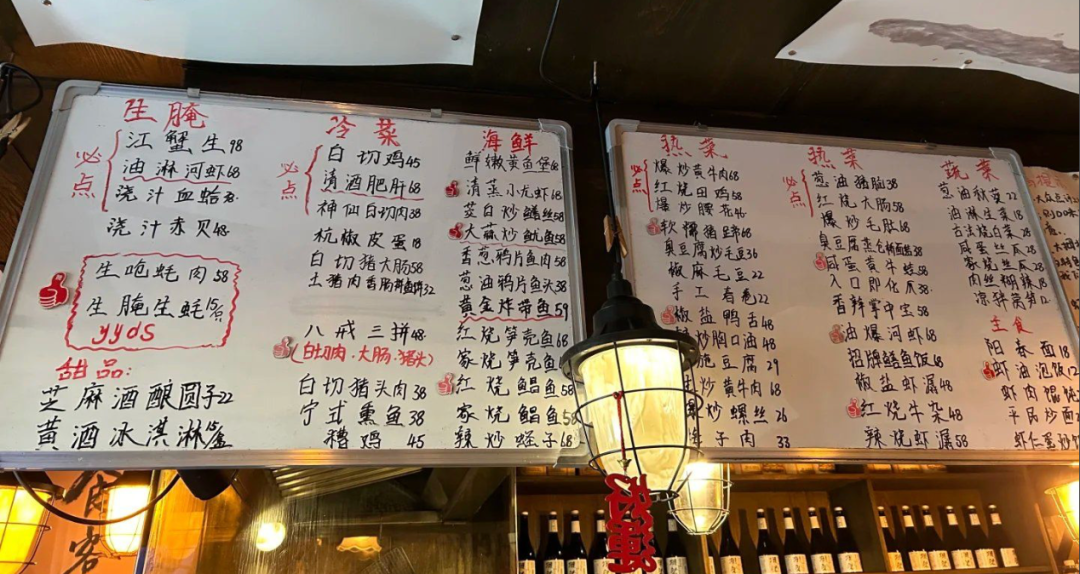 生腌
必点
江蟹生98
油淋河虾68
浇汁血蛤38
浇汁赤贝48
生吃蚝肉58
生腌生蚝15/只
yyds
甜品:
芝麻酒酿圆子22
黄酒冰淇淋
冷菜
必点
白切鸡45
清酒肥肝68
神仙白切肉38
杭椒皮蛋18
白切猪大肠58
土猪肉香肠拼鱼鲞32
八戒三拼48
(白切肉·大肠·猪头)
白切猪头肉38
宁式熏鱼38
糟鸡45
海鲜
鲜嫩黄鱼堡68
清蒸小龙虾68
茭白炒鳝丝58
大蒜炒鱿鱼58
香葱鸦片鱼肉58
葱油鸦片鱼头38
黄金炸带鱼59
红烧笋壳鱼68
家烧笋壳鱼68
红烧鲳鱼58
家烧鲳鱼58
辣炒蛏子68
热菜
必点
爆炒黄牛肉68
红烧田鸡58
爆炒腰花46
软糯猪蹄68
臭豆腐炒毛豆36
椒麻毛豆22
手工春卷22
椒盐鸭舌48
炒胸口油48
豆腐29
炒黄牛肉68
炒螺丝26
子肉33
热菜
必点
葱油猪脑38
红烧大肠58
爆炒毛肚48
咸蛋黄牛蛙58
入口即化瓜38
香辣掌中宝58
油爆河虾68
招牌鳝鱼饭68
椒盐虾潺48
红烧牛杂48
辣烧虾潺58
蔬菜
葱油秋葵22
油淋生菜18
古法烧白菜28
咸蛋丝瓜28
家烧丝瓜28
肉丝榔辣18
凉拌莴笋12
主食
阳春面18
虾油泡饭12
虾肉馄饨
平民炒面
虾仁蛋炒饭